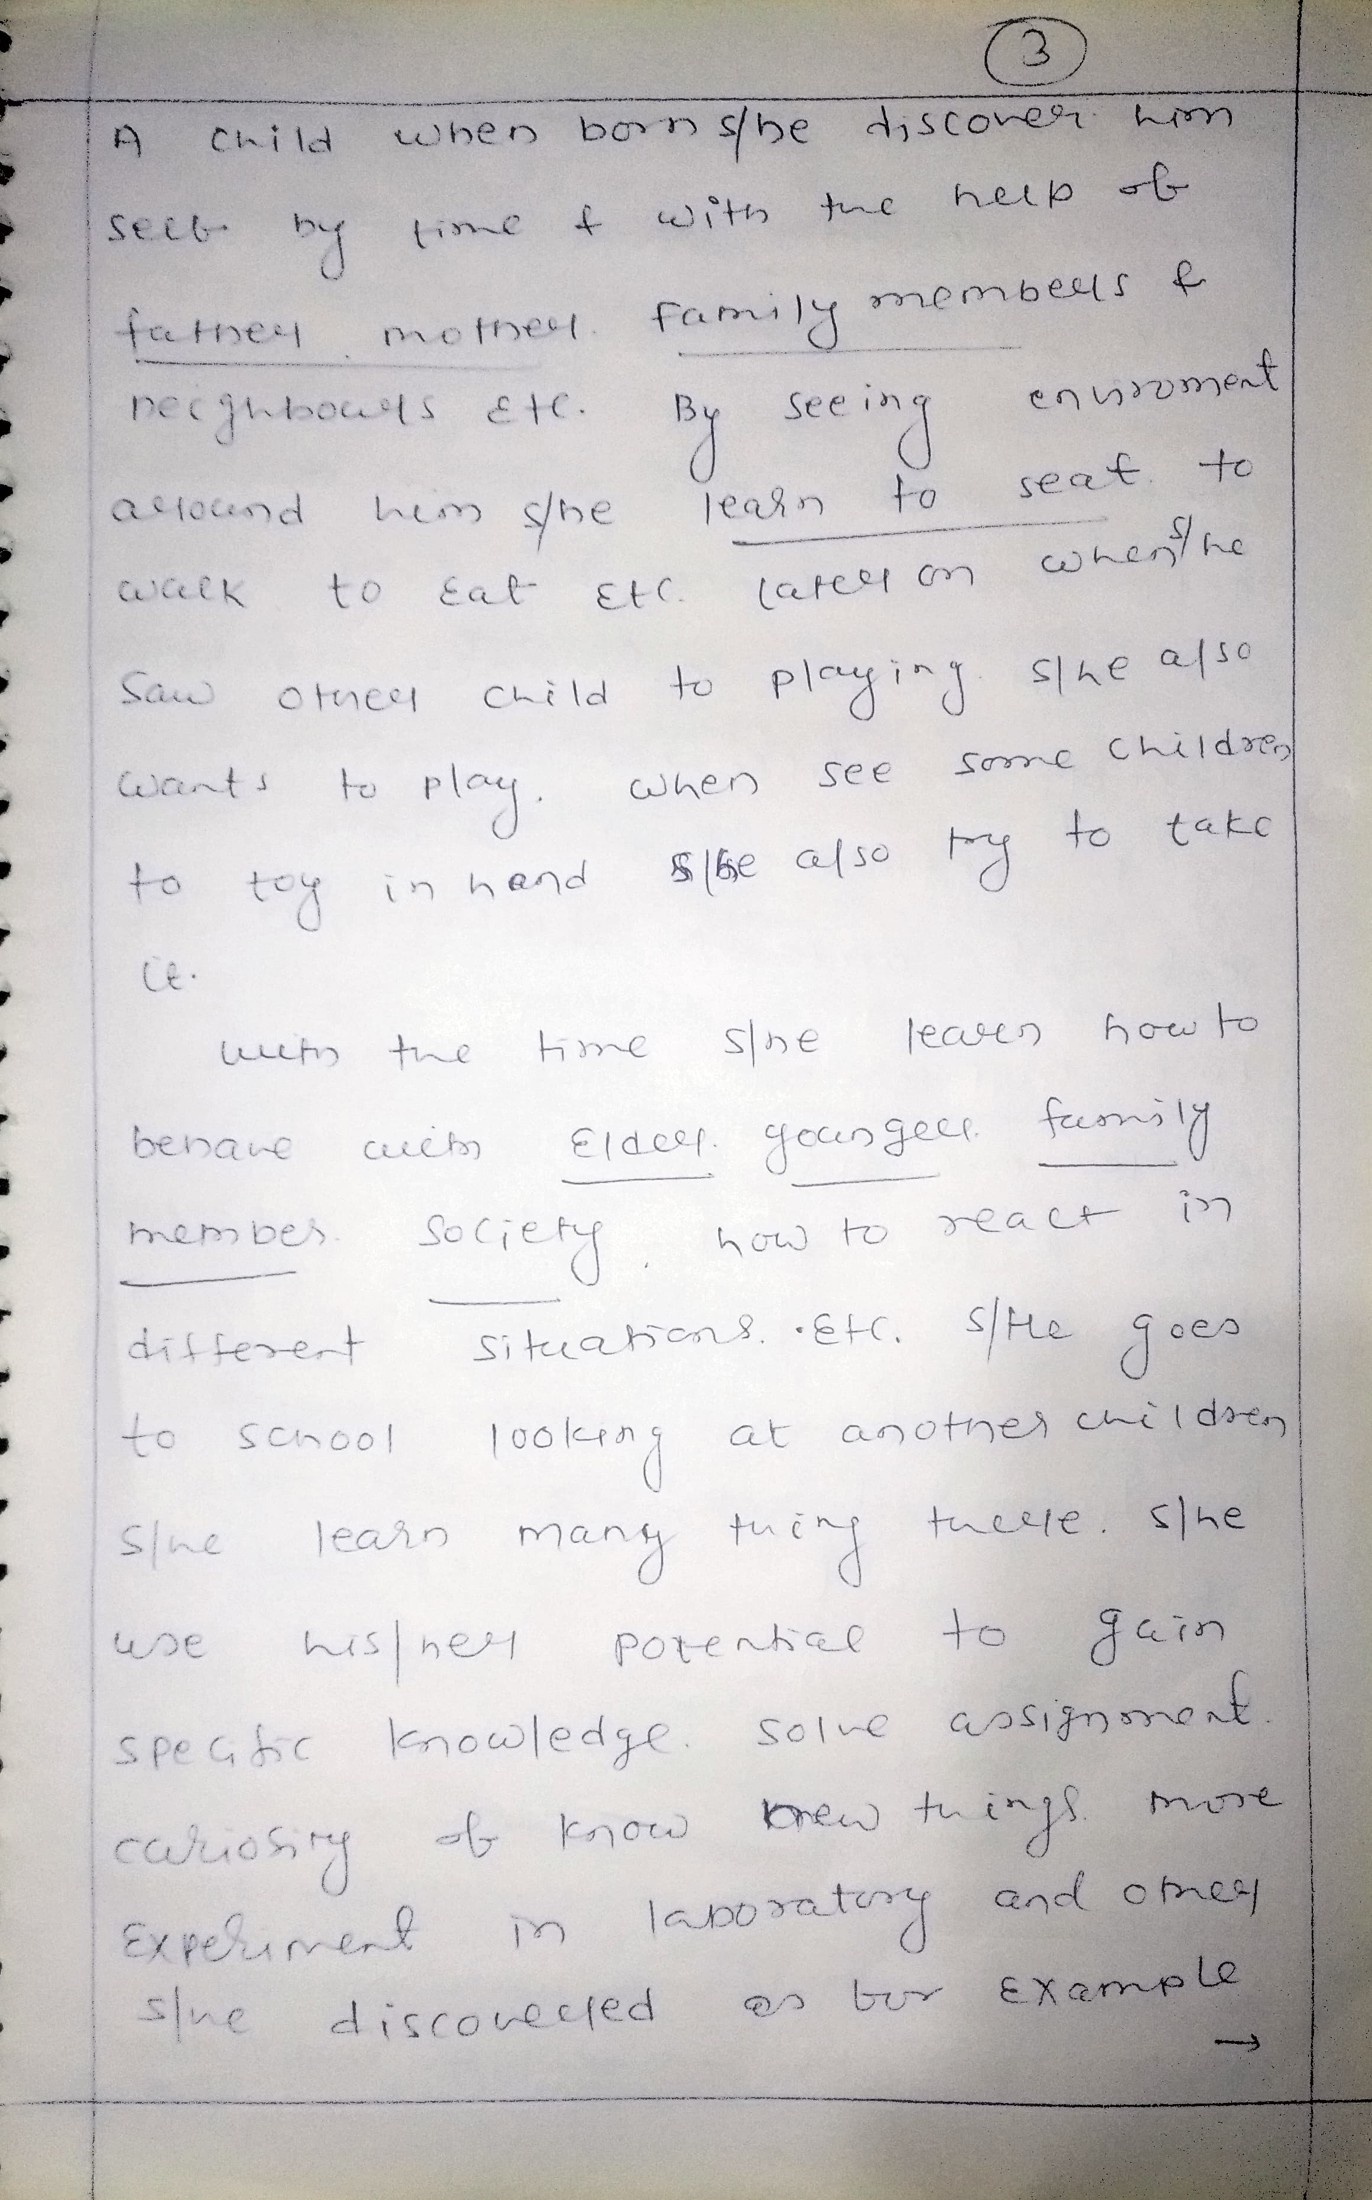 3
A child when born s/he discover him
self by time & with the help of
father, mother. family members &
neighbours Etc. By seeing enviroment
around him s/he learn to seat. to
walk to Eat Etc. later on when s/he
saw other child to playing. s/he also
wants to play. when see some children
to toy in hand s/he also try to take
it.
with the time s/he learn how to
behave with Elder. younger. family
member. society, how to react in
different situations. Etc. s/He goes
to school looking at another children
s/he learn many thing there. s/he
use his/her potential to gain
specific knowledge. solve assignment.
curiosity of know new things. more
Experiment in laboratory and other
s/he discovered as for Example
→